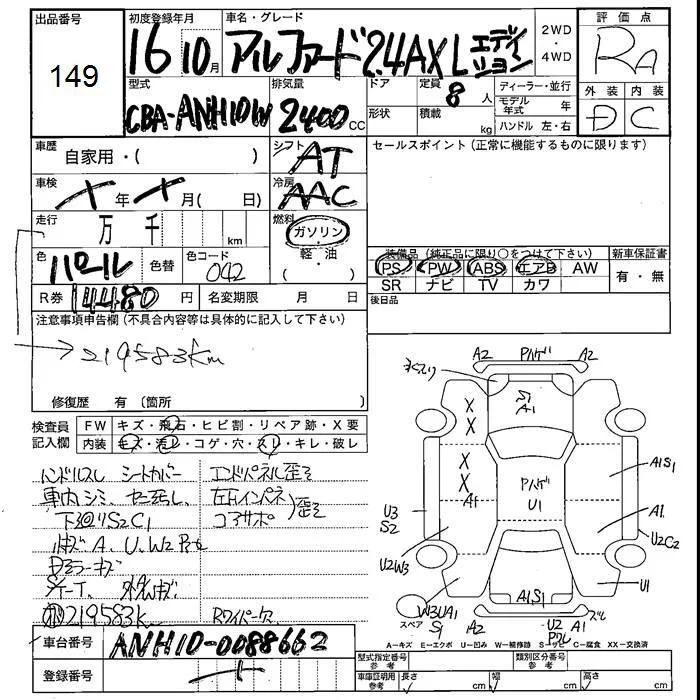 出品番号
149
初度登録年月
16 10月
車名・グレード
アルファード 2.4AX Lエディション
2WD・4WD
評価点
RA
外装 内装
D C
型式
CBA-ANH10W
排気量
2400cc
ドア
形状
定員
8人
積載
kg
ディーラー・並行
モデル年式 年
ハンドル 左・右
車歴
自家用・( )
シフト
AT
セールスポイント(正常に機能するものに限ります)
車検
年 月( 日)
冷房
AAC
走行
万 千 km
燃料
ガソリン・軽・油
色
パール
色替
色コード
042
装備品(純正品に限り○をつけて下さい)
新車保証書
PS PW ABS エアB AW
SR ナビ TV カワ
有・無
R券 14480円
名変期限 月 日
後日品
注意事項申告欄(不具合内容等は具体的に記入して下さい)
219583km
修復歴 有(箇所 )
検査員記入欄
FW キズ・飛石・ヒビ割・リペア跡・X要
内装 キズ・汚レ・コゲ・穴・スレ・キレ・破レ
ハンドルスレ シートカバー
車内シミ、
下廻りS2C1
小キズA、U、W2
Dミラーキズ
219583k
エンドパネル歪ミ
左右インパネ
コアサポ 歪ミ
Rワイパー欠
車台番号
ANH10-0088662
登録番号
A2 Pハゲ A2
S1
A1
X
X
X
X
A1
Pハゲ
U1
A1S1
A1
U3
S2
U2W3
U2C2
U1
A1S1
W3UA1
S1
スペア
A2
U2
A1
A-キズ E-エクボ U-凹み W-補修跡 S-サビ C-腐食 XX-交換済
型式指定番号 参考
類別区分番号 参考
車庫証明用参考
長さ cm
幅 cm
高さ cm